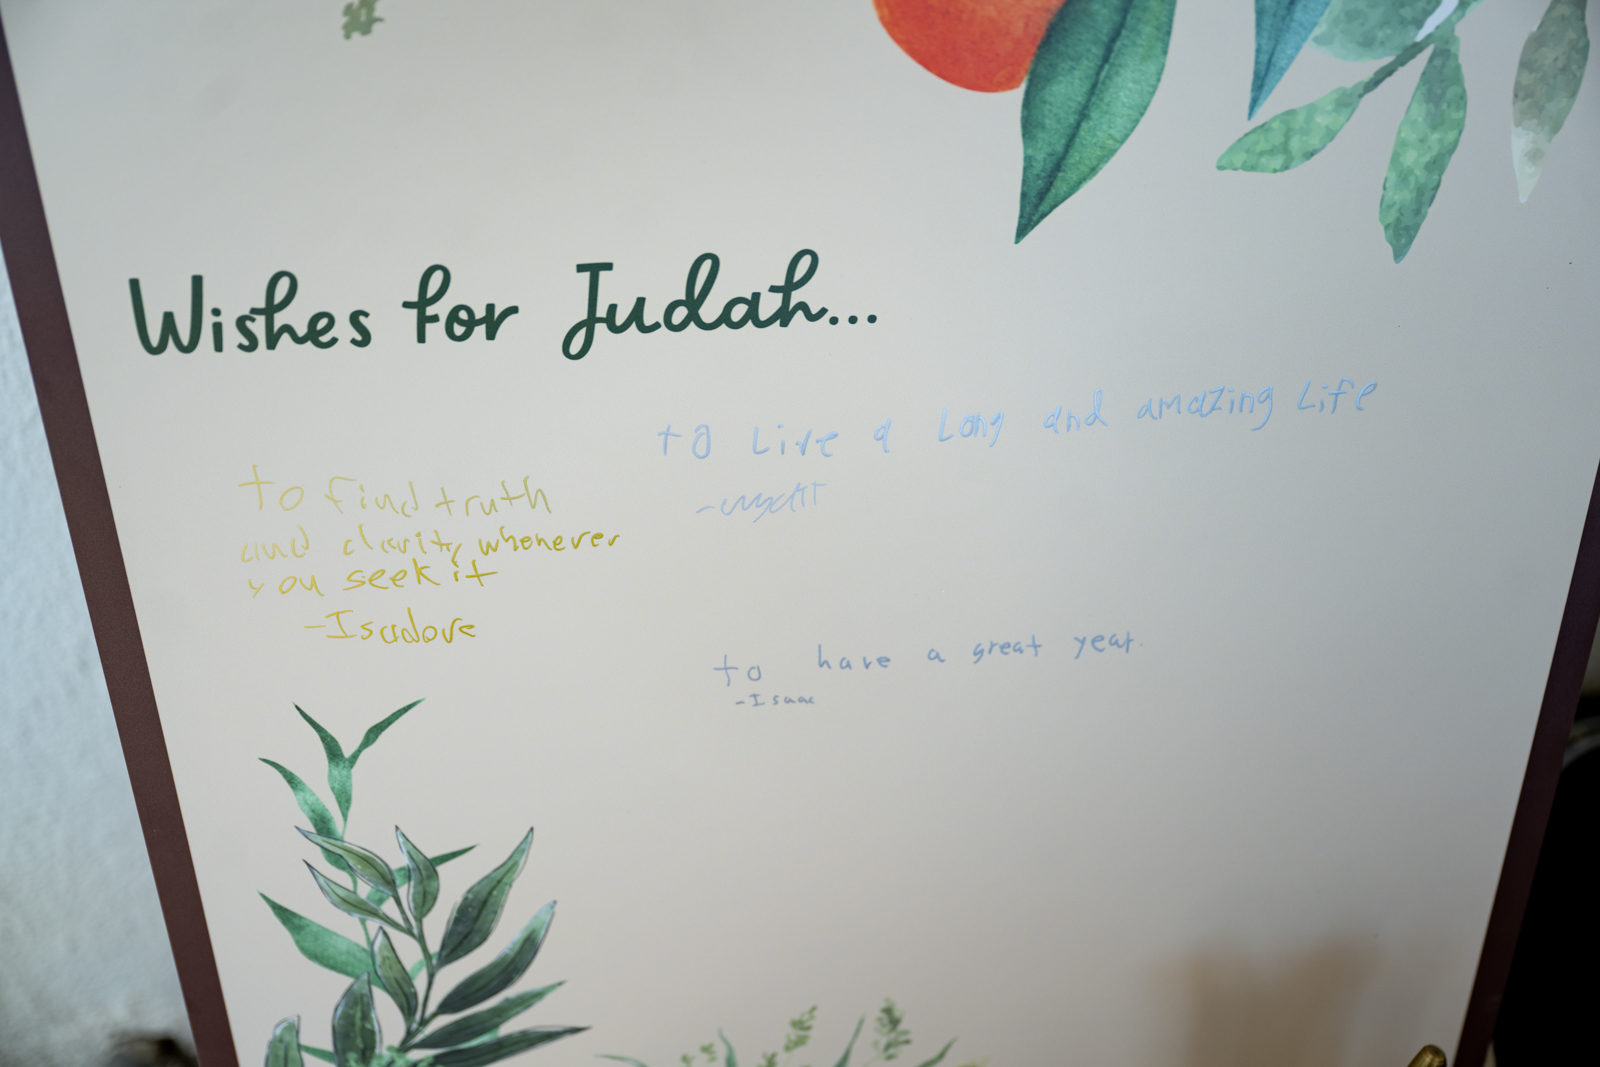 Wishes for Judah...
to Live a Long and amazing Life
-wyatt
to find truth
and clarity whenever
you seek it
-Isadore
to have a great year.
-Isaac